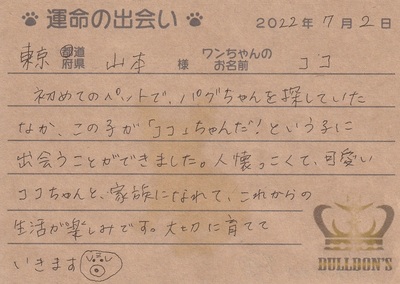 運命の出会い
2022年7月2日
東京 都道府県 山本 様 ワンちゃんのお名前 ココ
初めてのペットで、パグちゃんを探していた
なか、この子が「ココ」ちゃんだ!という子に
出会うことができました。人懐っこくて、可愛い
ココちゃんと、家族になれて、これからの
生活が楽しみです。大切に育てて
いきます
BULLDON'S